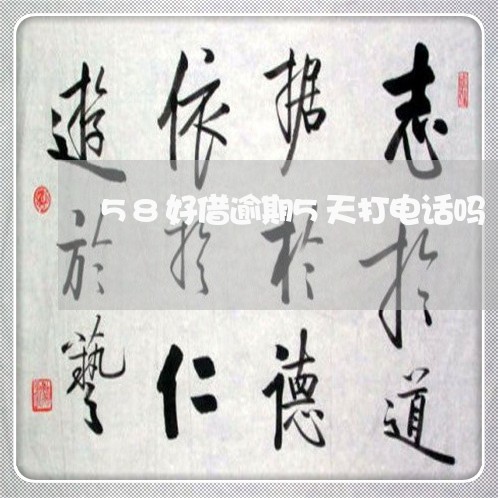 志於道
据於德
依於仁
遊於藝
58好借逾期5天打电话吗